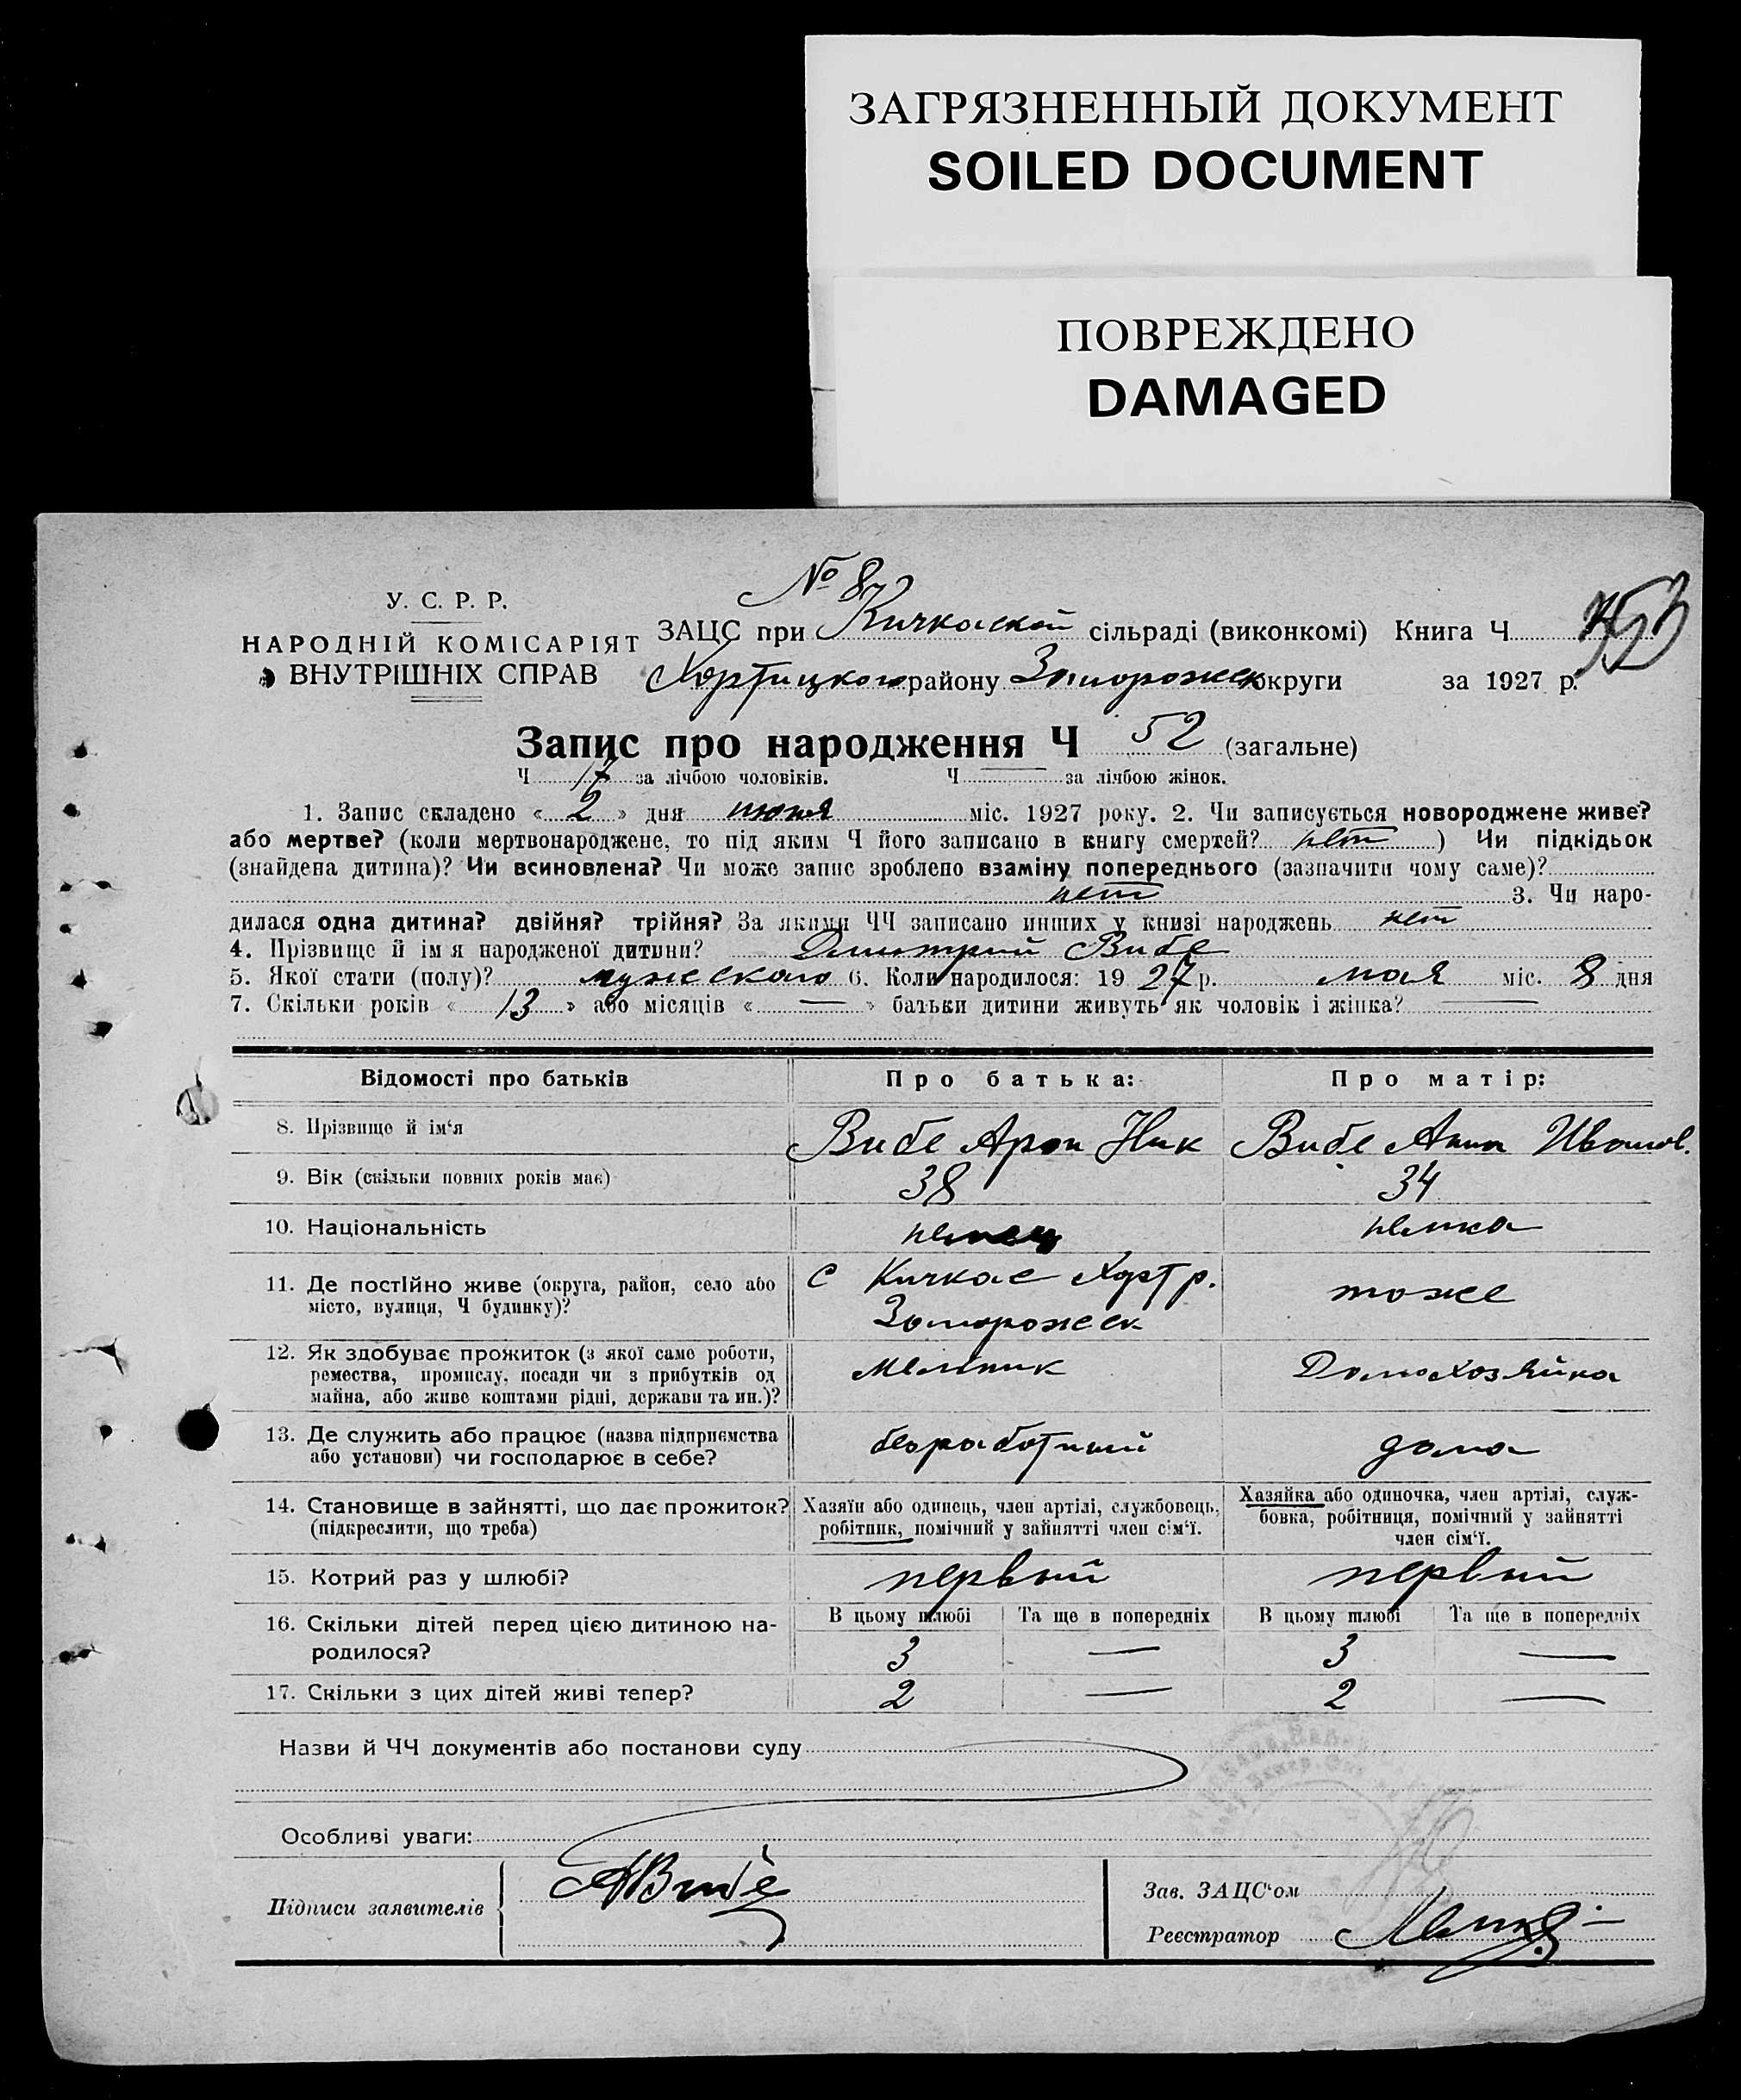 ЗАГРЯЗНЕННЫЙ ДОКУМЕНТ
SOILED DOCUMENT
ПОВРЕЖДЕНО
DAMAGED
№ 87
У. С. Р. Р.
НАРОДНІЙ КОМІСАРІЯТ
ВНУТРІШНІХ СПРАВ
ЗАЦС при Кичкаской сільраді (виконкомі) Книга Ч
Хортицкого району Запорожск округи за 1927 р.
Запис про народження Ч 52 (загальне)
Ч 17 за лічбою чоловіків. Ч — за лічбою жінок.
1. Запис складено « 2 » дня июня міс. 1927 року. 2. Чи записується новороджене живе?
або мертве? (коли мертвонароджене, то під яким Ч його записано в книгу смертей? нет ) Чи підкідьок
(знайдена дитина)? Чи всиновлена? Чи може запис зроблено взаміну попереднього (зазначити чому саме)?
нет 3. Чи наро-
дилася одна дитина? двійня? трійня? За якими ЧЧ записано инших у книзі народжень нет
4. Прізвище й ім я народженої дитини? Дмитрий Вибе
5. Якої стати (полу)? мужеского 6. Коли народилося: 19 27 р. мая міс. 8 дня
7. Скільки років « 13 » або місяців « — » батьки дитини живуть як чоловік і жінка? —
Відомості про батьків Про батька: Про матір:
8. Прізвище й ім‘я Вибе Арон Ник Вибе Анна Иванов.
9. Вік (скільки повних років має) 38 34
10. Національність немец немка
11. Де постійно живе (округа, район, село або
місто, вулиця, Ч будинку)?
С Кичкас Хорт р.
Запорожск
тоже
12. Як здобуває прожиток (з якої саме роботи,
ремества, промислу, посади чи з прибутків од
майна, або живе коштами рідні, держави та ин.)?
мельник Домохозяйка
13. Де служить або працює (назва підприємства
або установи) чи господарює в себе?
безработный дома
14. Становище в зайнятті, що дає прожиток?
(підкреслити, що треба)
Хазяїн або одинець, член артілі, службовець,
робітник, помічний у зайнятті член сім‘ї.
Хазяйка або одиночка, член артілі, служ-
бовка, робітниця, помічний у зайнятті
член сім‘ї.
15. Котрий раз у шлюбі? первый первый
16. Скільки дітей перед цією дитиною на-
родилося?
В цьому шлюбі Та ще в попередніх В цьому шлюбі Та ще в попередніх
3 — 3 —
17. Скільки з цих дітей живі тепер? 2 — 2 —
Назви й ЧЧ документів або постанови суду
Особливі уваги:
Підписи заявителів АВибе
Зав. ЗАЦС‘ом
Реєстратор